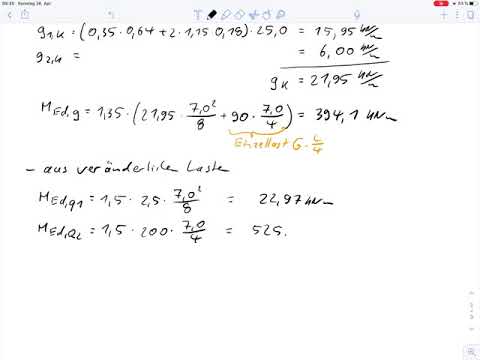 09:39 Sonntag 26. Apr.
g1,k = (0,35 · 0,64 + 2 · 1,15 · 0,18) · 25,0 = 15,95 kN/m
g2,k = = 6,00 kN/m
gk = 21,95 kN/m
MEd,g = 1,35 · (21,95 · 7,0²/8 + 90 · 7,0/4) = 394,1 kNm
Einzellast G · L/4
– aus veränderlichen Lasten
MEd,q1 = 1,5 · 2,5 · 7,0²/8 = 22,97 kNm
MEd,Q2 = 1,5 · 200 · 7,0/4 = 525.